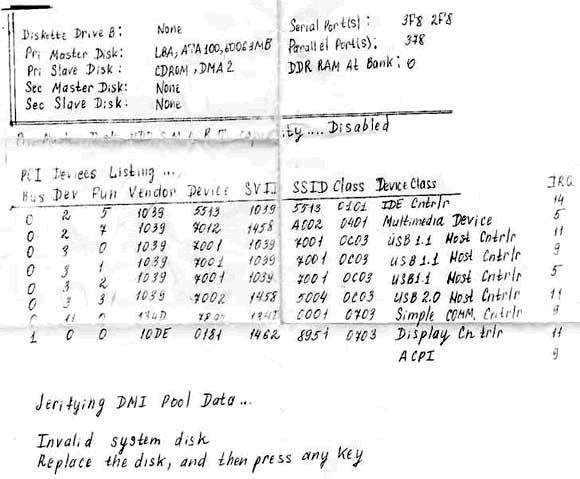 Diskette Drive B: None Serial Port(s): 3F8 2F8
Pri Master Disk: LBA, ATA100, 60063MB Parallel Port(s): 378
Pri Slave Disk: CDROM, DMA2 DDR RAM At Bank: 0
Sec Master Disk: None
Sec Slave Disk: None
Disabled
PCI Devices Listing ...
Bus Dev Fun Vendor Device SVID SSID Class Device Class IRQ
0 2 5 1039 5513 1039 5513 0101 IDE Cntrlr 14
0 2 7 1039 7012 1458 A002 0401 Multimedia Device 5
0 3 0 1039 7001 1039 7001 0C03 USB 1.1 Host Cntrlr 11
0 3 1 1039 7001 1039 7001 0C03 USB 1.1 Host Cntrlr 9
0 3 2 1039 7001 1039 7001 0C03 USB 1.1 Host Cntrlr 5
0 3 3 1039 7002 1458 5004 0C03 USB 2.0 Host Cntrlr 11
0 11 0 0703 Simple COMM. Cntrlr 9
1 0 0 10DE 0181 1462 8951 0703 Display Cntrlr 11
ACPI 9
Jerifying DMI Pool Data ...
Invalid system disk
Replace the disk, and then press any key